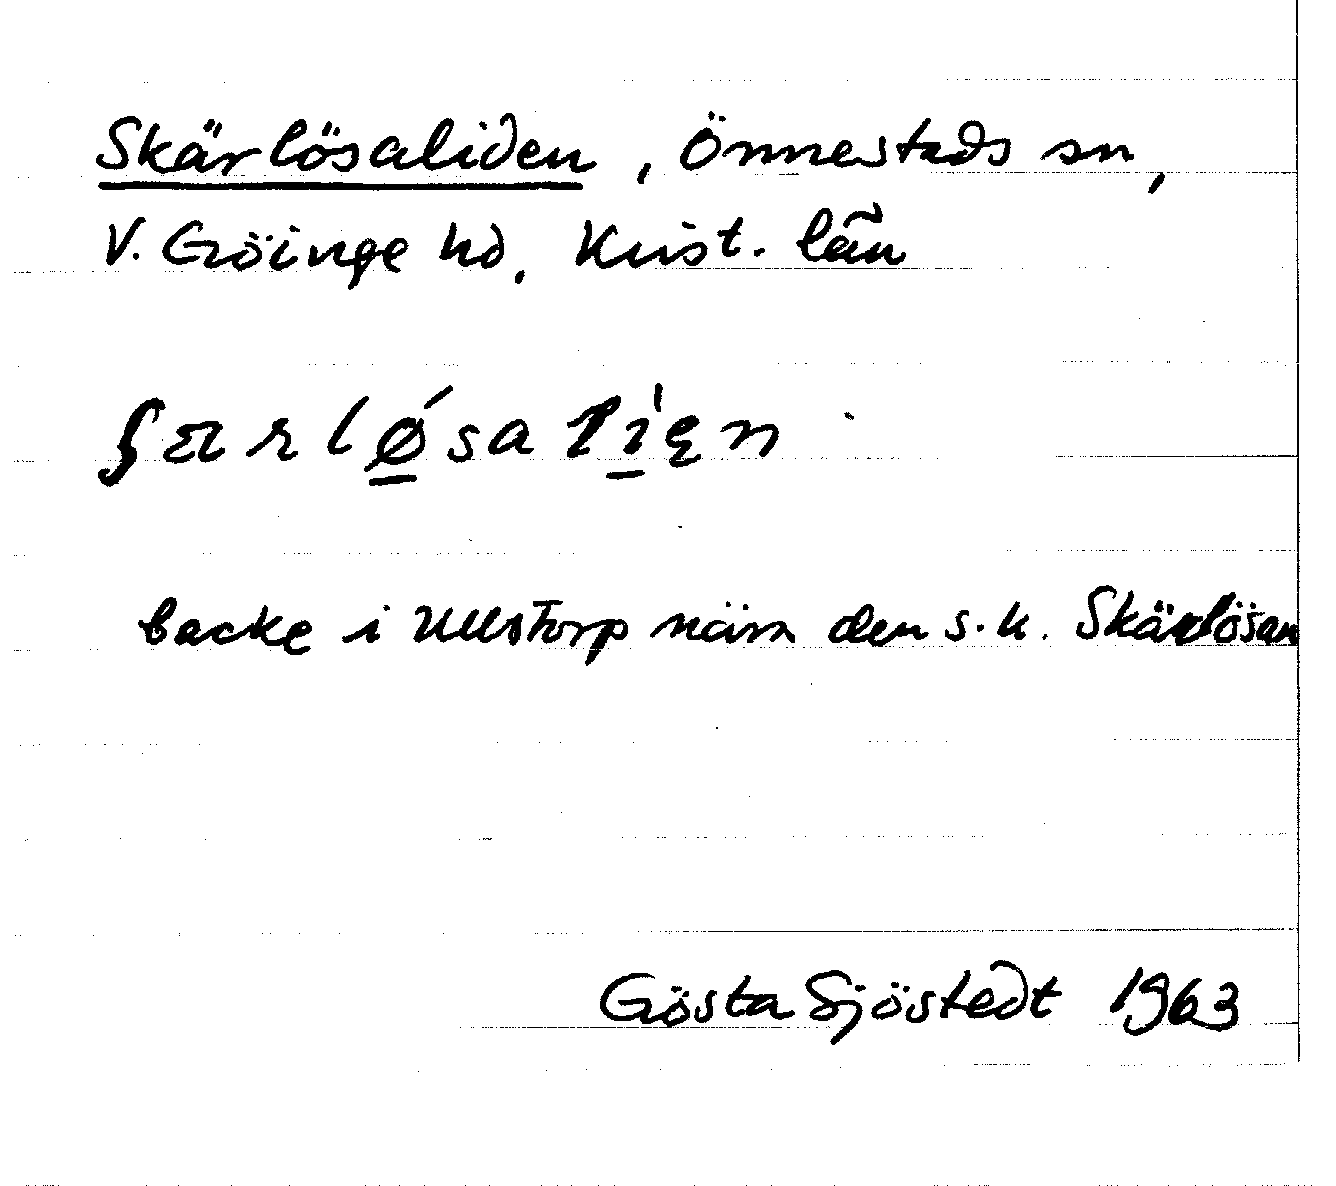 Skärlösaliden, Önnestads sn,
V. Göinge hd, Krist. län
backe i Ullstorp nära den s.k. Skärlösan
Gösta Sjöstedt 1963